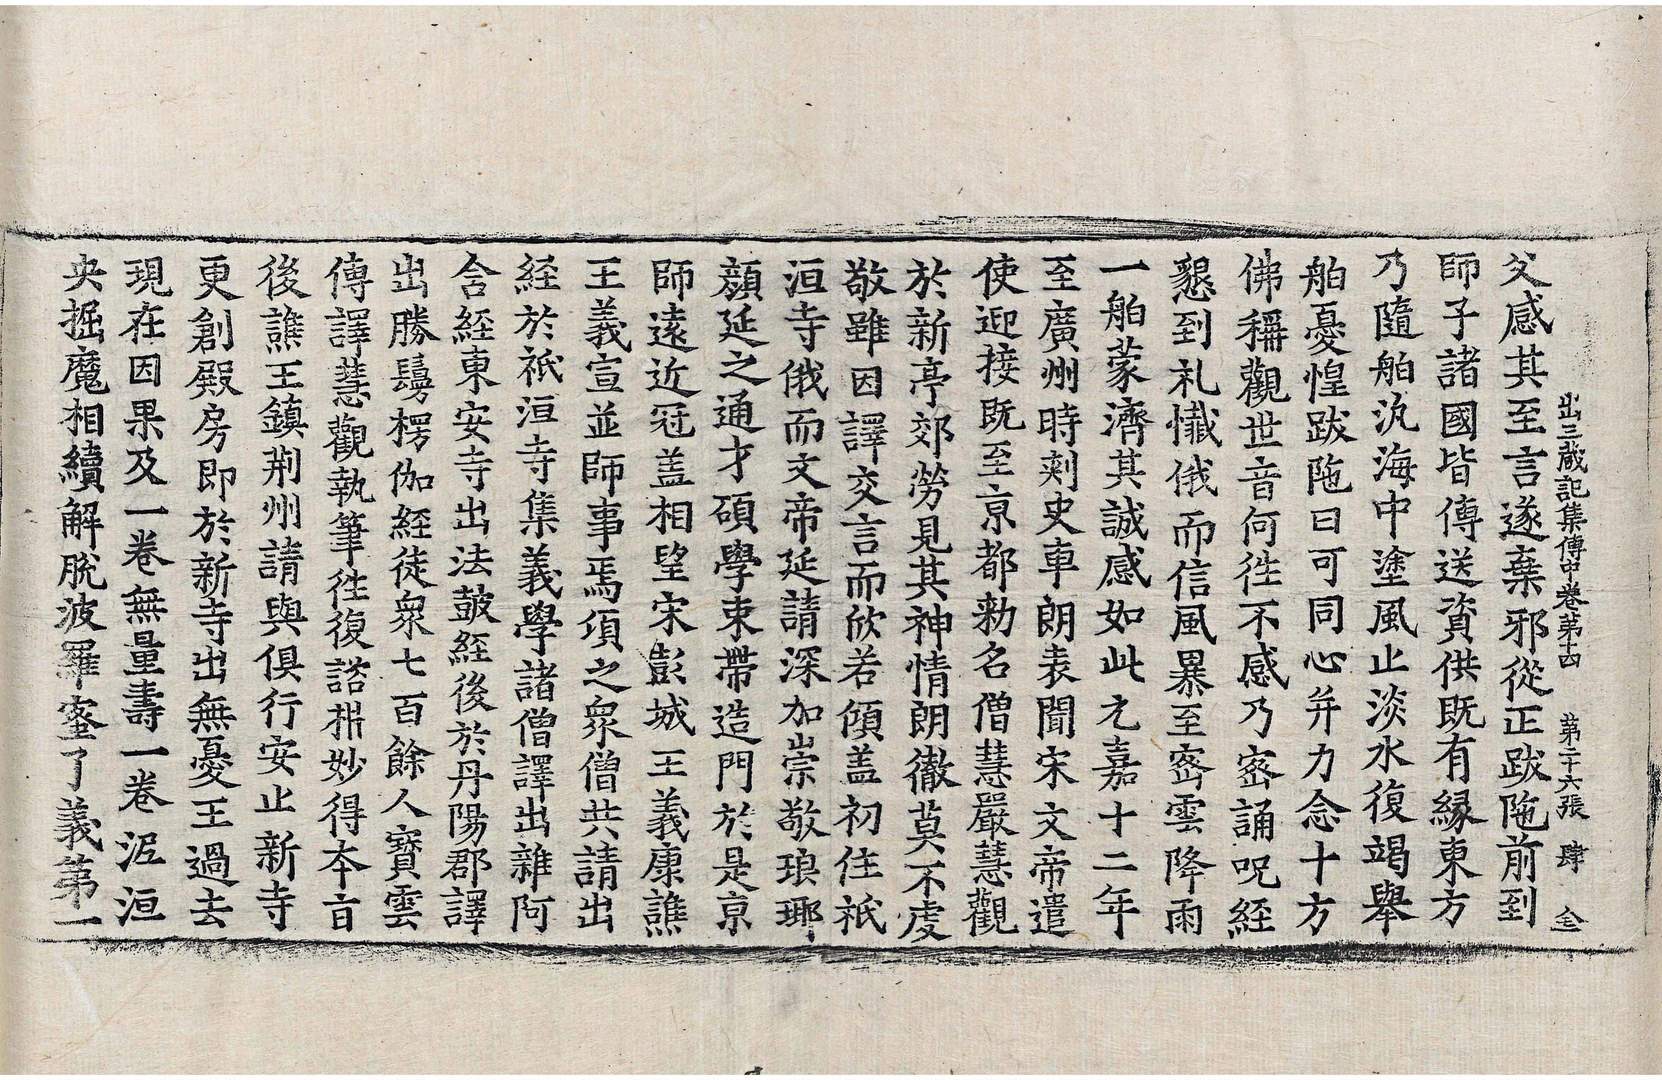 出三藏記集傳中卷第十四 第二十六張 肆 仝
父感其至言遂棄邪從正跋陁前到
師子諸國皆傳送資供既有縁東方
乃隨舶汎海中塗風止淡水復竭舉
舶憂惶跋陁曰可同心并力念十方
佛稱觀世音何徃不感乃密誦呪経
懇到礼懺俄而信風暴至密雲降雨
一舶蒙濟其誠感如此元嘉十二年
至廣州時刾史車朗表聞宋文帝遣
使迎接既至京都勑名僧慧嚴慧觀
於新亭郊勞見其神情朗徹莫不虔
敬雖因譯交言而欣若傾盖初住祇
洹寺俄而文帝延請深加崇敬琅瑘
顔延之通才碩學束帶造門於是京
師遠近冠盖相望宋彭城王義康譙
王義宣並師事焉頃之衆僧共請出
経於祇洹寺集義學諸僧譯出雜阿
含経東安寺出法鼓経後於丹陽郡譯
出勝鬘楞伽経徒衆七百餘人寶雲
傳譯慧觀執筆徃復諮析妙得本旨
後譙王鎮荆州請與俱行安止新寺
更創殿房即於新寺出無憂王過去
現在因果及一卷無量壽一卷泥洹
央掘魔相續解脫波羅蜜了義第一